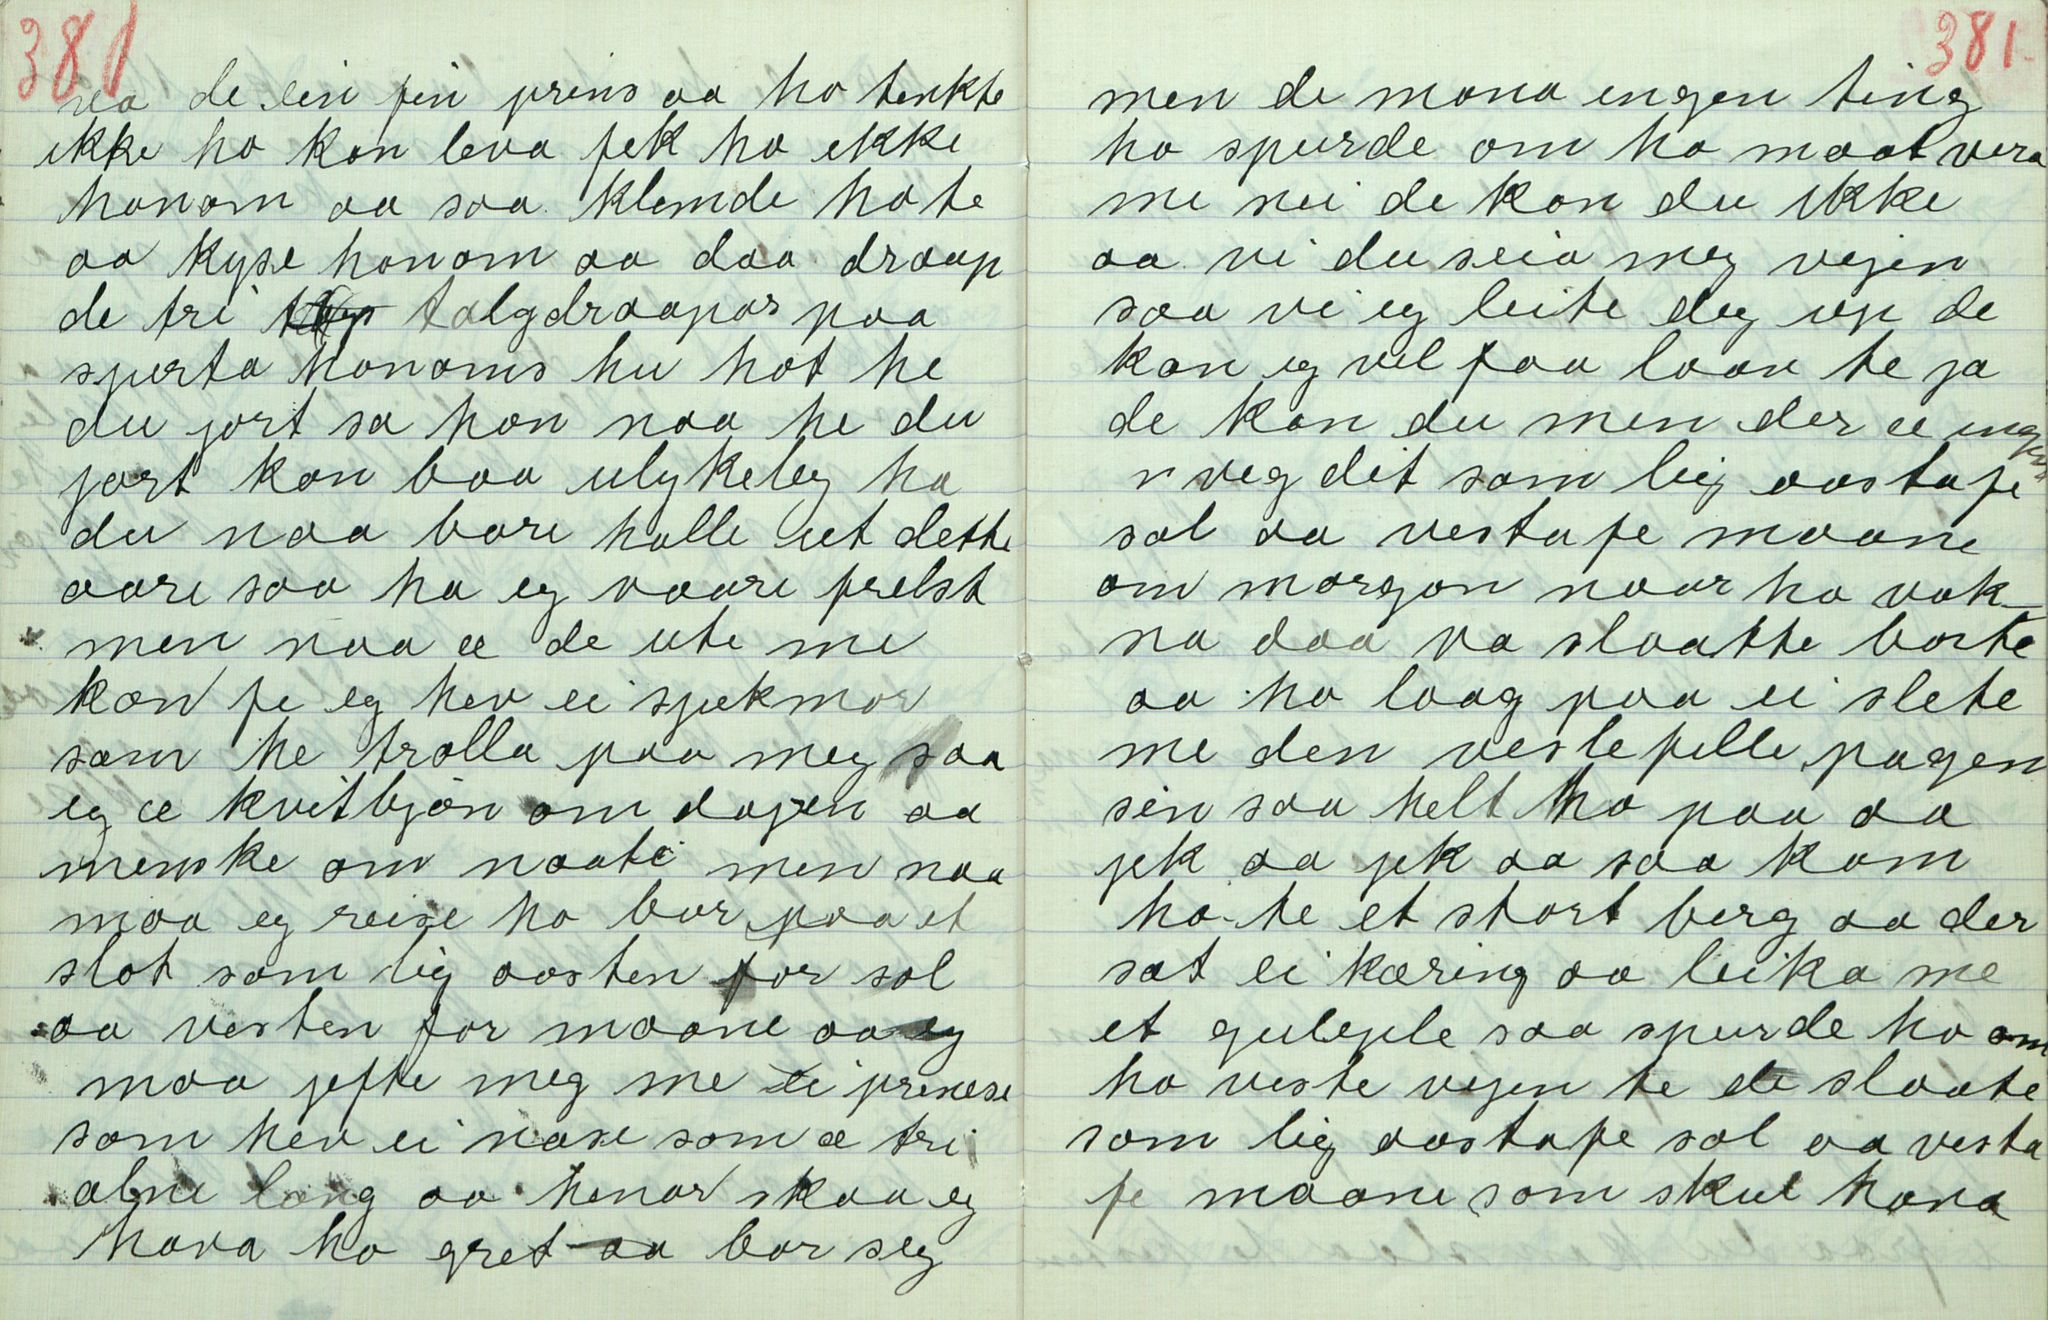 381
va de ein fin prins aa ho tenkte
ikke ho kan leva fek ho ikke
honom aa saa klemde ho te
aa kyse honom aa daa draap
de tri talgdraapar paa
sperta honoms hu hot he
du jort sa han naa he du
jort kon baa ulykeleg ha
du naa bare halle ut dette
aare saa ha eg vaare frelst
men naa æ de ute me
kon fe eg hev ei stjekmor
som he trolla paa meg saa
eg æ kvitbjøn om dagen aa
menske om naate men naa
maa eg reise ho bur paa et
slot som lig aasten for sol
aa vesten for maane aa eg
maa jefte meg me ei prinsese
som hev ei nase som æ tri
alne lang aa henar skaa eg
hava ho gret aa bar seg
381.
men de mona ingen ting
ho spurde om ho maat vera
me nei de kan du ikke
aa vi du seia meg vejen
saa vi eg leite deg up de
kan eg vel faa laav te ja
de kan du men der æ ingen
veg dit som lig aastafe
sol aa vestafe maane
om morgon naar ho vok-
na daa va slaatte borte
aa ho laag paa ei slete
me den veslefille pagen
sin saa helt ho paa aa
jek aa jek aa saa kom
ho te et stort berg aa der
sat ei kæring aa leika me
et guleple saa spurde ho om
ho viste vejen te de slaate
som lig aastafe sol aa vesta
fe maane som skul hava